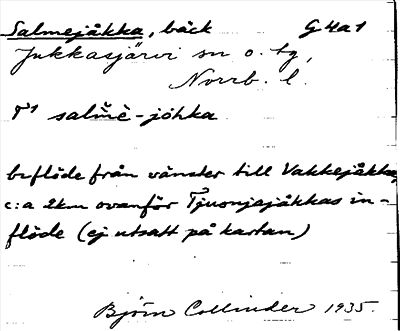 Salmejåkka, bäck G4a1
Jukkasjärvi sn o. tg,
Norrb. l.
T¹ salm̆è-jóhka
biflöde från vänster till Vakkejåkka,
c:a 2km ovanför Tjuonjajåkkas in-
flöde (ej utsatt på kartan)
Björn Collinder 1935.